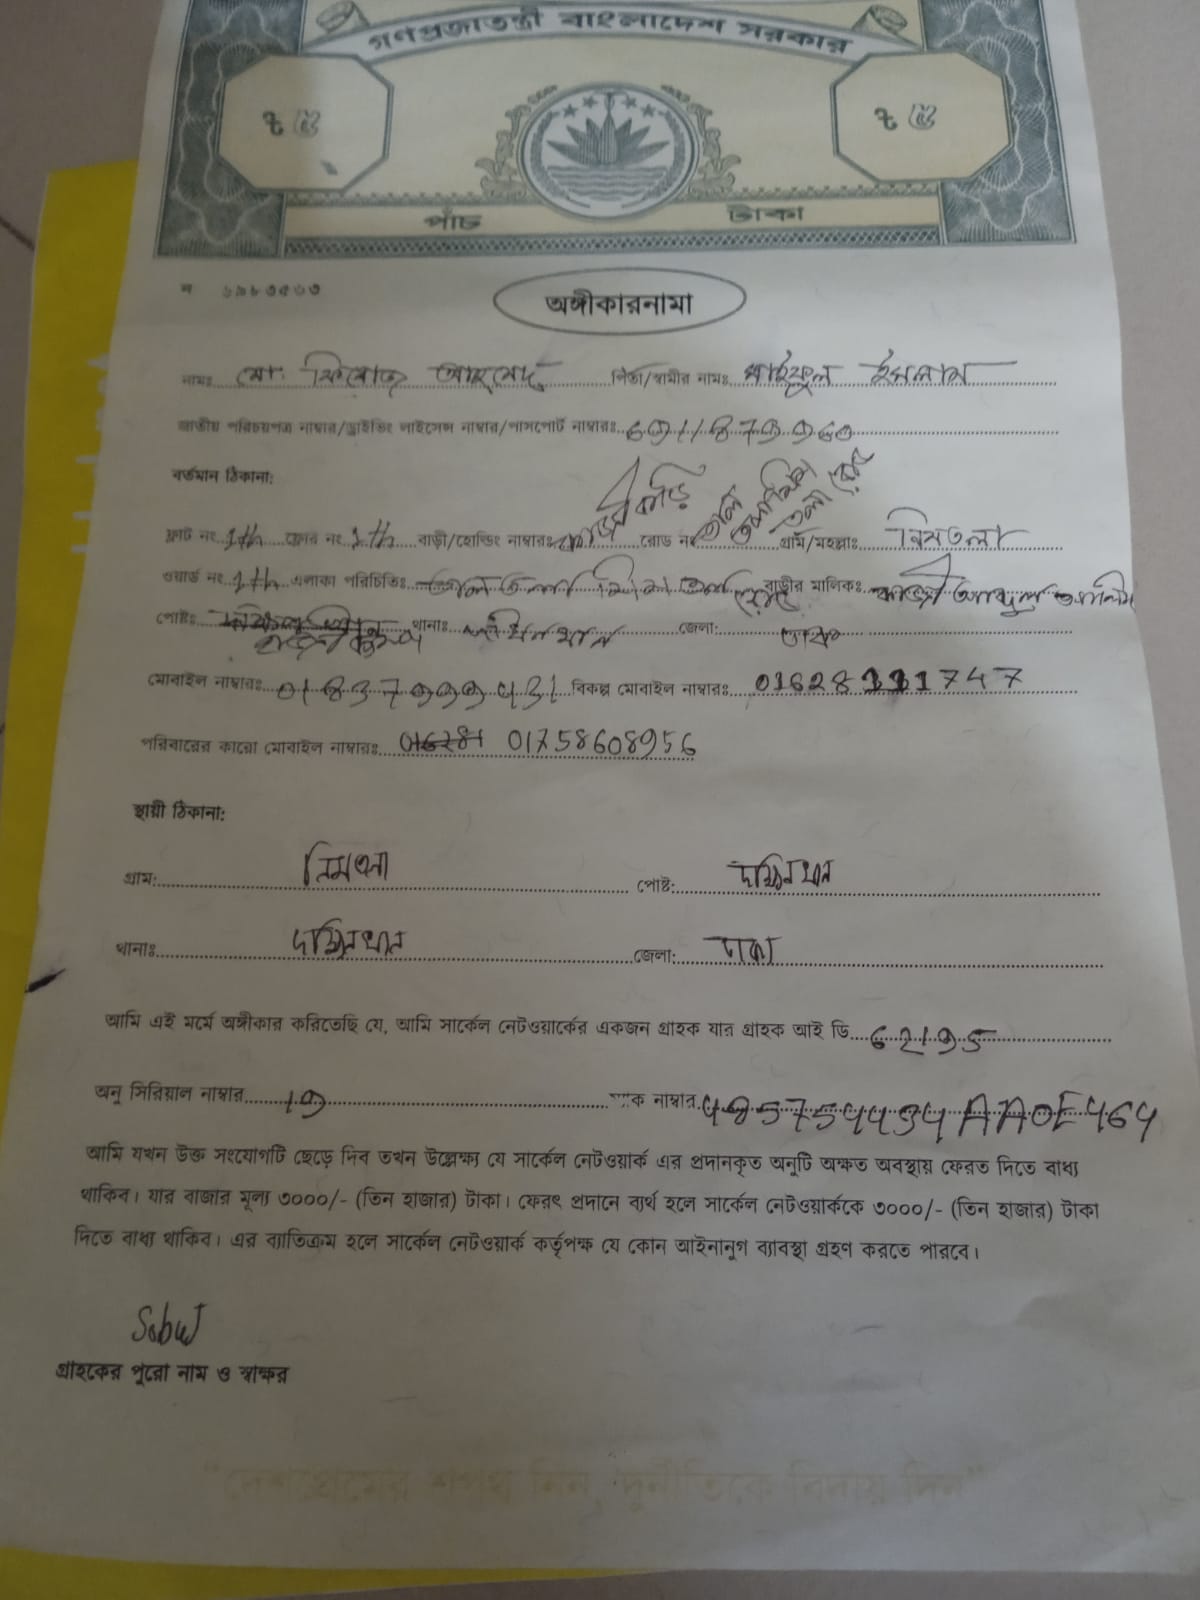 গণপ্রজাতন্ত্রী বাংলাদেশ সরকার
৳ ৫ ৳ ৫
পাঁচ টাকা
অঙ্গীকারনামা
নামঃ মো: ফিরোজ আহমেদ পিতা/স্বামীর নামঃ সাইফুল ইসলাম
জাতীয় পরিচয়পত্র নাম্বার/ড্রাইভিং লাইসেন্স নাম্বার/পাসপোর্ট নাম্বারঃ
বর্তমান ঠিকানা:
ফ্লাট নং 1th ফ্লোর নং 1th বাড়ী/হোল্ডিং নাম্বারঃ কাজী বাড়ি রোড নং গ্রাম/মহল্লাঃ নিমতলা
ওয়ার্ড নং 1th এলাকা পরিচিতিঃ বাড়ীর মালিকঃ কাজী আব্দুল আলিম
পোষ্টঃ থানাঃ দক্ষিনখান জেলা: ঢাকা
মোবাইল নাম্বারঃ বিকল্প মোবাইল নাম্বারঃ 01628111747
পরিবারের কারো মোবাইল নাম্বারঃ 01758608956
স্থায়ী ঠিকানা:
গ্রাম: নিমতলা পোষ্ট: দক্ষিনখান
থানাঃ দক্ষিনখান জেলা: ঢাকা
আমি এই মর্মে অঙ্গীকার করিতেছি যে, আমি সার্কেল নেটওয়ার্কের একজন গ্রাহক যার গ্রাহক আই ডি 62195
অনু সিরিয়াল নাম্বার 19 ম্যাক নাম্বার 485754434AA0E464
আমি যখন উক্ত সংযোগটি ছেড়ে দিব তখন উল্লেক্ষ্য যে সার্কেল নেটওয়ার্ক এর প্রদানকৃত অনুটি অক্ষত অবস্থায় ফেরত দিতে বাধ্য
থাকিব। যার বাজার মূল্য ৩০০০/- (তিন হাজার) টাকা। ফেরৎ প্রদানে ব্যর্থ হলে সার্কেল নেটওয়ার্ককে ৩০০০/- (তিন হাজার) টাকা
দিতে বাধ্য থাকিব। এর ব্যাতিক্রম হলে সার্কেল নেটওয়ার্ক কর্তৃপক্ষ যে কোন আইনানুগ ব্যাবস্থা গ্রহণ করতে পারবে।
Sobuj
গ্রাহকের পুরো নাম ও স্বাক্ষর
"দেশপ্রেমের শপথ নিন, দুর্নীতিকে বিদায় দিন"